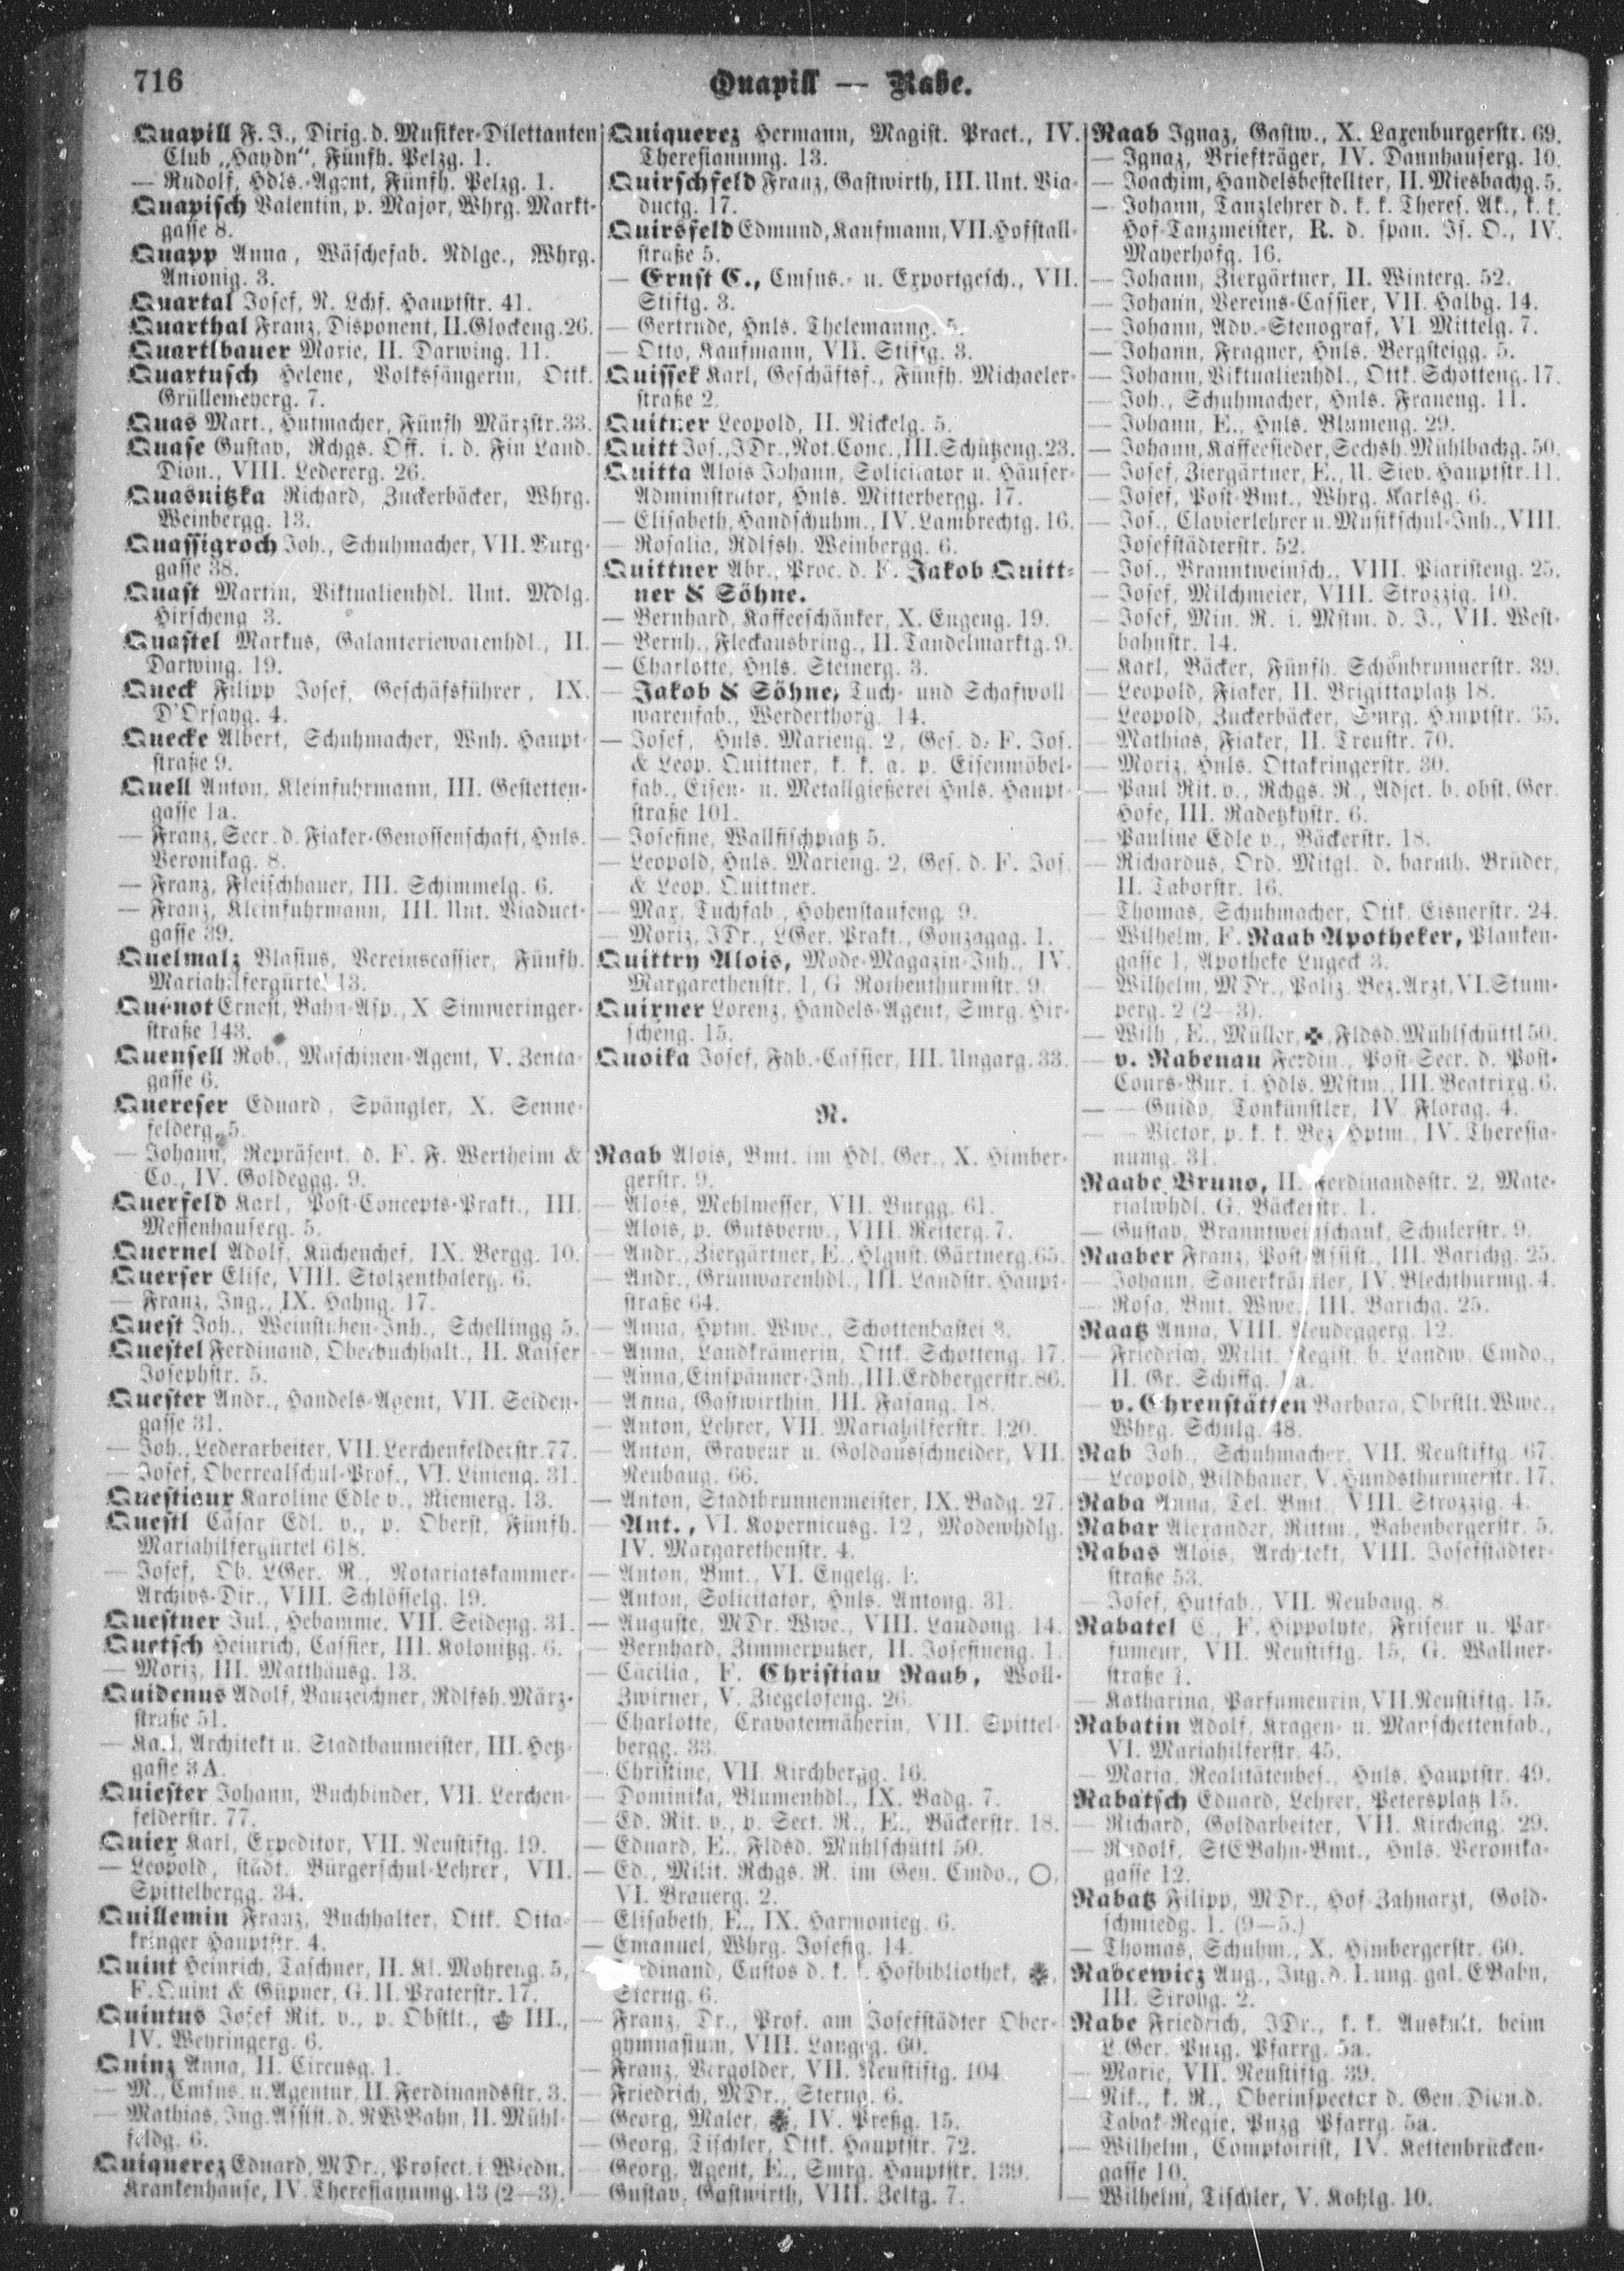 716
Quapill — Rabe.
Quapill F. J., Dirig. d. Musiker-Dilettanten
Club „Haydn“, Fünfh. Pelzg. 1.
— Rudolf, Hdls.-Agent, Fünfh. Pelzg. 1.
Quapisch Valentin, p. Major, Whrg. Markt-
gasse 8.
Quapp Anna, Wäschefab. Ndlge., Whrg.
Antonig. 3.
Quartal Josef, N. Lchf. Hauptstr. 41.
Quarthal Franz, Disponent, II. Glockeng. 26.
Quartlbauer Marie, II. Darwing. 11.
Quartusch Helene, Volkssängerin, Ottk.
Grüllemeyerg. 7.
Quas Mart., Hutmacher, Fünfh Märzstr. 33.
Quase Gustav, Rchgs. Off. i. d. Fin Land.
Dion., VIII. Ledererg. 26.
Quasnitzka Richard, Zuckerbäcker, Whrg.
Weinbergg. 13.
Quassigroch Joh., Schuhmacher, VII. Burg-
gasse 38.
Quast Martin, Viktualienhdl. Unt. Mdlg.
Hirscheng 3.
Quastel Markus, Galanteriewarenhdl., II.
Darwing. 19.
Queck Filipp Josef, Geschäfsführer, IX.
D'Orsayg. 4.
Quecke Albert, Schuhmacher, Wnh. Haupt-
straße 9.
Quell Anton, Kleinfuhrmann, III. Gestetten-
gasse 1a.
— Franz, Secr. d. Fiaker-Genossenschaft, Hnls.
Veronikag. 8.
— Franz, Fleischhauer, III. Schimmelg. 6.
— Franz, Kleinfuhrmann, III. Unt. Viaduct-
gasse 39.
Quelmalz Blasius, Vereinscassier, Fünfh.
Mariahilfergürtel 13.
Quénot Ernest, Bahn-Asp., X. Simmeringer-
straße 143.
Quensell Rob., Maschinen-Agent, V. Zenta-
gasse 6.
Quereser Eduard, Spängler, X. Senne-
felderg. 5.
— Johann, Repräsent. d. F. F. Wertheim &
Co., IV. Goldeggg. 9.
Querfeld Karl, Post-Concepts-Prakt., III.
Messenhauserg. 5.
Quernel Adolf, Küchenchef, IX. Bergg. 10.
Querser Elise, VIII. Stolzenthalerg. 6.
— Franz, Ing., IX. Hahng. 17.
Quest Joh., Weinstuben-Inh., Schellingg 5.
Questel Ferdinand, Oberbuchhalt., II. Kaiser
Josephstr. 5.
Quester Andr., Handels-Agent, VII. Seiden-
gasse 31.
— Joh., Lederarbeiter, VII. Lerchenfelderstr. 77.
— Josef, Oberrealschul-Prof., VI. Linieng. 31.
Questiaux Karoline Edle v., Riemerg. 13.
Questl Cäsar Edl. v., p. Oberst, Fünfh.
Mariahilfergürtel 618.
— Josef, Ob. LGer. R., Notariatskammer-
Archivs-Dir., VIII. Schlösselg. 19.
Questner Jul., Hebamme, VII. Seideng. 31.
Quetsch Heinrich, Cassier, III. Kolonitzg. 6.
— Moriz, III. Matthäusg. 13.
Quidenus Adolf, Bauzeichner, Rdlfsh. März-
straße 51.
— Karl, Architekt u. Stadtbaumeister, III. Hetz-
gasse 3A.
Quiester Johann, Buchbinder, VII. Lerchen-
felderstr. 77.
Quier Karl, Expeditor, VII. Neustiftg. 19.
— Leopold, städt. Bürgerschul-Lehrer, VII.
Spittelbergg. 34.
Quillemin Franz, Buchhalter, Ottk. Otta-
kringer Hauptstr. 4.
Quint Heinrich, Taschner, II. Kl. Mohreng. 5,
F. Quint & Güpner, G. II. Praterstr. 17.
Quintus Josef Rit. v., p. Obstlt., III.,
IV. Weyringerg. 6.
Quinz Anna, II. Circusg. 1.
— M., Cmsns. u. Agentur, II. Ferdinandsstr. 3.
— Mathias, Ing. Assist. d. NWBahn, II. Mühl-
feldg. 6.
Quiquerez Eduard, MDr., Prosect. i. Wiedn.
Krankenhause, IV. Theresianumg. 13 (2—3).
Quiquerez Hermann, Magist. Pract., IV.
Theresianumg. 13.
Quirschfeld Franz, Gastwirth, III. Unt. Via-
ductg. 17.
Quirsfeld Edmund, Kaufmann, VII. Hofstall-
straße 5.
— Ernst C., Cmsns.- u. Exportgesch., VII.
Stiftg. 3.
— Gertrude, Hnls. Thelemanng. 5.
— Otto, Kaufmann, VII. Stiftg. 3.
Quissek Karl, Geschäftsf., Fünfh. Michaeler-
straße 2.
Quitner Leopold, II. Nickelg. 5.
Quitt Jos., JDr., Not. Conc., III. Schützeng. 23.
Quitta Alois Johann, Solicitator u. Häuser-
Administrator, Hnls. Mitterbergg. 17.
— Elisabeth, Handschuhm., IV. Lambrechtg. 16.
— Rosalia, Rdlfsh. Weinbergg. 6.
Quittner Abr., Proc. d. F. Jakob Quitt-
ner & Söhne.
— Bernhard, Kaffeeschänker, X. Eugeng. 19.
— Bernh., Fleckausbring., II. Tandelmarktg. 9.
— Charlotte, Hnls. Steinerg. 3.
— Jakob & Söhne, Tuch- und Schafwoll
warenfab., Werderthorg. 14.
— Josef, Hnls. Marieng. 2, Ges. d. F. Jos.
& Leop. Quittner, k. k. a. p. Eisenmöbel-
fab., Eisen- u. Metallgießerei Hnls. Haupt-
straße 101.
— Josefine, Wallfischplatz 5.
— Leopold, Hnls. Marieng. 2, Ges. d. F. Jos.
& Leop. Quittner.
— Max, Tuchfab., Hohenstaufeng. 9.
— Moriz, JDr., LGer. Prakt., Gonzagag. 1.
Quittry Alois, Mode-Magazin-Inh., IV.
Margarethenstr. 1, G Rothenthurmstr. 9.
Quirner Lorenz, Handels-Agent, Smrg. Hir-
scheng. 15.
Quoika Josef, Fab.-Cassier, III. Ungarg. 33.
R.
Raab Alois, Bmt. im Hdl. Ger., X. Himber-
gerstr. 9.
— Alois, Mehlmesser, VII. Burgg. 61.
— Alois, p. Gutsverw., VIII. Reiterg. 7.
— Andr., Ziergärtner, E., Hlgnst. Gärtnerg. 65.
— Andr., Grünwarenhdl., III. Landstr. Haupt-
straße 64.
— Anna, Hptm. Wwe., Schottenbastei 3.
— Anna, Landkrämerin, Ottk. Schotteng. 17.
— Anna, Einspänner-Inh., III. Erdbergerstr. 86.
— Anna, Gastwirthin, III. Fasang. 18.
— Anton, Lehrer, VII. Mariahilferstr. 120.
— Anton, Graveur u. Goldausschneider, VII.
Neubaug. 66.
— Anton, Stadtbrunnenmeister, IX. Badg. 27.
— Ant., VI. Kopernicusg. 12, Modewhdlg.
IV. Margarethenstr. 4.
— Anton, Bmt., VI. Engelg. 1.
— Anton, Solicitator, Hnls. Antong. 31.
— Auguste, MDr. Wwe., VIII. Laudong. 14.
— Bernhard, Zimmerputzer, II. Josefineng. 1.
— Cäcilia, F. Christian Raab, Woll-
Zwirner, V. Ziegelofeng. 26.
— Charlotte, Cravatennäherin, VII. Spittel-
bergg. 33.
— Christine, VII. Kirchbergg. 16.
— Dominika, Blumenhdl., IX. Badg. 7.
— Ed. Rit. v., p. Sect. R., E., Bäckerstr. 18.
— Eduard, E., Fldsd. Mühlschüttl 50.
— Ed., Milit. Rchgs. R. im Gen. Cmdo., ◯,
VI. Brauerg. 2.
— Elisabeth, E., IX. Harmonieg. 6.
— Emanuel, Whrg. Josefig. 14.
rdinand, Custos d. k. k. Hofbibliothek,
Sterng. 6.
— Franz, Dr., Prof. am Josefstädter Ober-
gymnasium, VIII. Langeg. 60.
— Franz, Vergolder, VII. Neustiftg. 104
— Friedrich, MDr., Sterng. 6.
— Georg, Maler, IV. Preßg. 15.
— Georg, Tischler, Ottk. Hauptstr. 72.
— Georg, Agent, E., Smrg. Hauptstr. 139.
— Gustav, Gastwirth, VIII. Zeltg. 7.
Raab Ignaz, Gastw., X. Laxenburgerstr. 69.
— Ignaz, Briefträger, IV. Dannhauserg. 10.
— Joachim, Handelsbestellter, II. Miesbachg. 5.
— Johann, Tanzlehrer d. k. k. Theres. Ak., k. k.
Hof-Tanzmeister, R. d. span. Is. O., IV.
Mayerhofg. 16.
— Johann, Ziergärtner, II. Winterg. 52.
— Johann, Vereins-Cassier, VII. Halbg. 14.
— Johann, Adv.-Stenograf, VI. Mittelg. 7.
— Johann, Fragner, Hnls. Bergsteigg. 5.
— Johann, Viktualienhdl., Ottk. Schotteng. 17.
— Joh., Schuhmacher, Hnls. Fraueng. 11.
— Johann, E., Hnls. Blumeng. 29.
— Johann, Kaffeesieder, Sechsh. Mühlbachg. 50.
— Josef, Ziergärtner, E., U. Siev. Hauptstr. 11.
— Josef, Post-Bmt., Whrg. Karlsg. 6.
— Jos., Clavierlehrer u. Musikschul-Inh., VIII.
Josefstädterstr. 52.
— Jos., Branntweinsch., VIII. Piaristeng. 25.
— Josef, Milchmeier, VIII. Strozzig. 10.
— Josef, Min. R. i. Mstm. d. J., VII. West-
bahnstr. 14.
— Karl, Bäcker, Fünfh. Schönbrunnerstr. 39.
— Leopold, Fiaker, II. Brigittaplatz 18.
— Leopold, Zuckerbäcker, Smrg. Hauptstr. 35.
— Mathias, Fiaker, II. Treustr. 70.
— Moriz, Hnls. Ottakringerstr. 30.
— Paul Rit. v., Rchgs. R., Adjct. b. obst. Ger.
Hofe, III. Radetzkystr. 6.
— Pauline Edle v., Bäckerstr. 18.
— Richardus, Ord. Mitgl. d. barmh. Brüder,
II. Taborstr. 16.
— Thomas, Schuhmacher, Ottk. Eisnerstr. 24.
— Wilhelm, F. Raab Apotheker, Planken-
gasse 1, Apotheke Lugeck 3.
— Wilhelm, MDr., Poliz. Bez. Arzt, VI. Stum-
perg. 2 (2—3).
— Wilh., E., Müller, Fldsd. Mühlschüttl 50.
— v. Rabenau Ferdin., Post-Secr. d. Post-
Cours-Bur. i. Hdls. Mstm., III. Beatrixg. 6.
— — Guido, Tonkünstler, IV. Florag. 4.
— — Victor, p. k. k. Bez. Hptm., IV. Theresia-
numg. 31.
Raabe Bruno, II. Ferdinandsstr. 2, Mate-
rialwhdl. G. Bäckerstr. 1.
— Gustav, Branntweinschank, Schulerstr. 9.
Raaber Franz, Post-Assist., III. Barichg. 25.
— Johann, Sauerkräutler, IV. Blechthurmg. 4.
— Rosa, Bmt. Wwe., III. Barichg. 25.
Raatz Anna, VIII. Neudeggerg. 12.
— Friedrich, Milit. Regist. b. Landw. Cmdo.,
II. Gr. Schiffg. 1a.
— v. Ehrenstätten Barbara, Obrstlt. Wwe.,
Whrg. Schulg. 48.
Rab Joh., Schuhmacher, VII. Neustiftg. 67.
— Leopold, Bildhauer, V. Hundsthurmerstr. 17.
Raba Anna, Tel. Bmt., VIII. Strozzig. 4.
Rabar Alexander, Rittm., Babenbergerstr. 5.
Rabas Alois, Architekt, VIII. Josefstädter-
straße 53.
— Josef, Hutfab., VII. Neubaug. 8.
Rabatel C., F. Hippolyte, Friseur u. Par-
fumeur, VII. Neustiftg. 15, G. Wallner-
straße 1.
— Katharina, Parfumeurin, VII. Neustiftg. 15.
Rabatin Adolf, Kragen- u. Manschettenfab.,
VI. Mariahilferstr. 45.
— Maria, Realitätenbes., Hnls. Hauptstr. 49.
Rabatsch Eduard, Lehrer, Petersplatz 15.
— Richard, Goldarbeiter, VII. Kircheng. 29.
— Rudolf, StEBahn-Bmt., Hnls. Veronika-
gasse 12.
Rabatz Filipp, MDr., Hof-Zahnarzt, Gold-
schmiedg. 1. (9—5.)
— Thomas, Schuhm., X. Himbergerstr. 60.
Rabcewicz Aug., Ing. d. I. ung. gal. EBahn,
III. Strohg. 2.
Rabe Friedrich, JDr., k. k. Auskult. beim
L Ger. Pnzg. Pfarrg. 5a.
— Marie, VII. Neustiftg. 39.
— Nik., k. R., Oberinspector d. Gen. Dion. d.
Tabak-Regie, Pnzg Pfarrg. 5a.
— Wilhelm, Comptoirist, IV. Kettenbrücken-
gasse 10.
— Wilhelm, Tischler, V. Kohlg. 10.